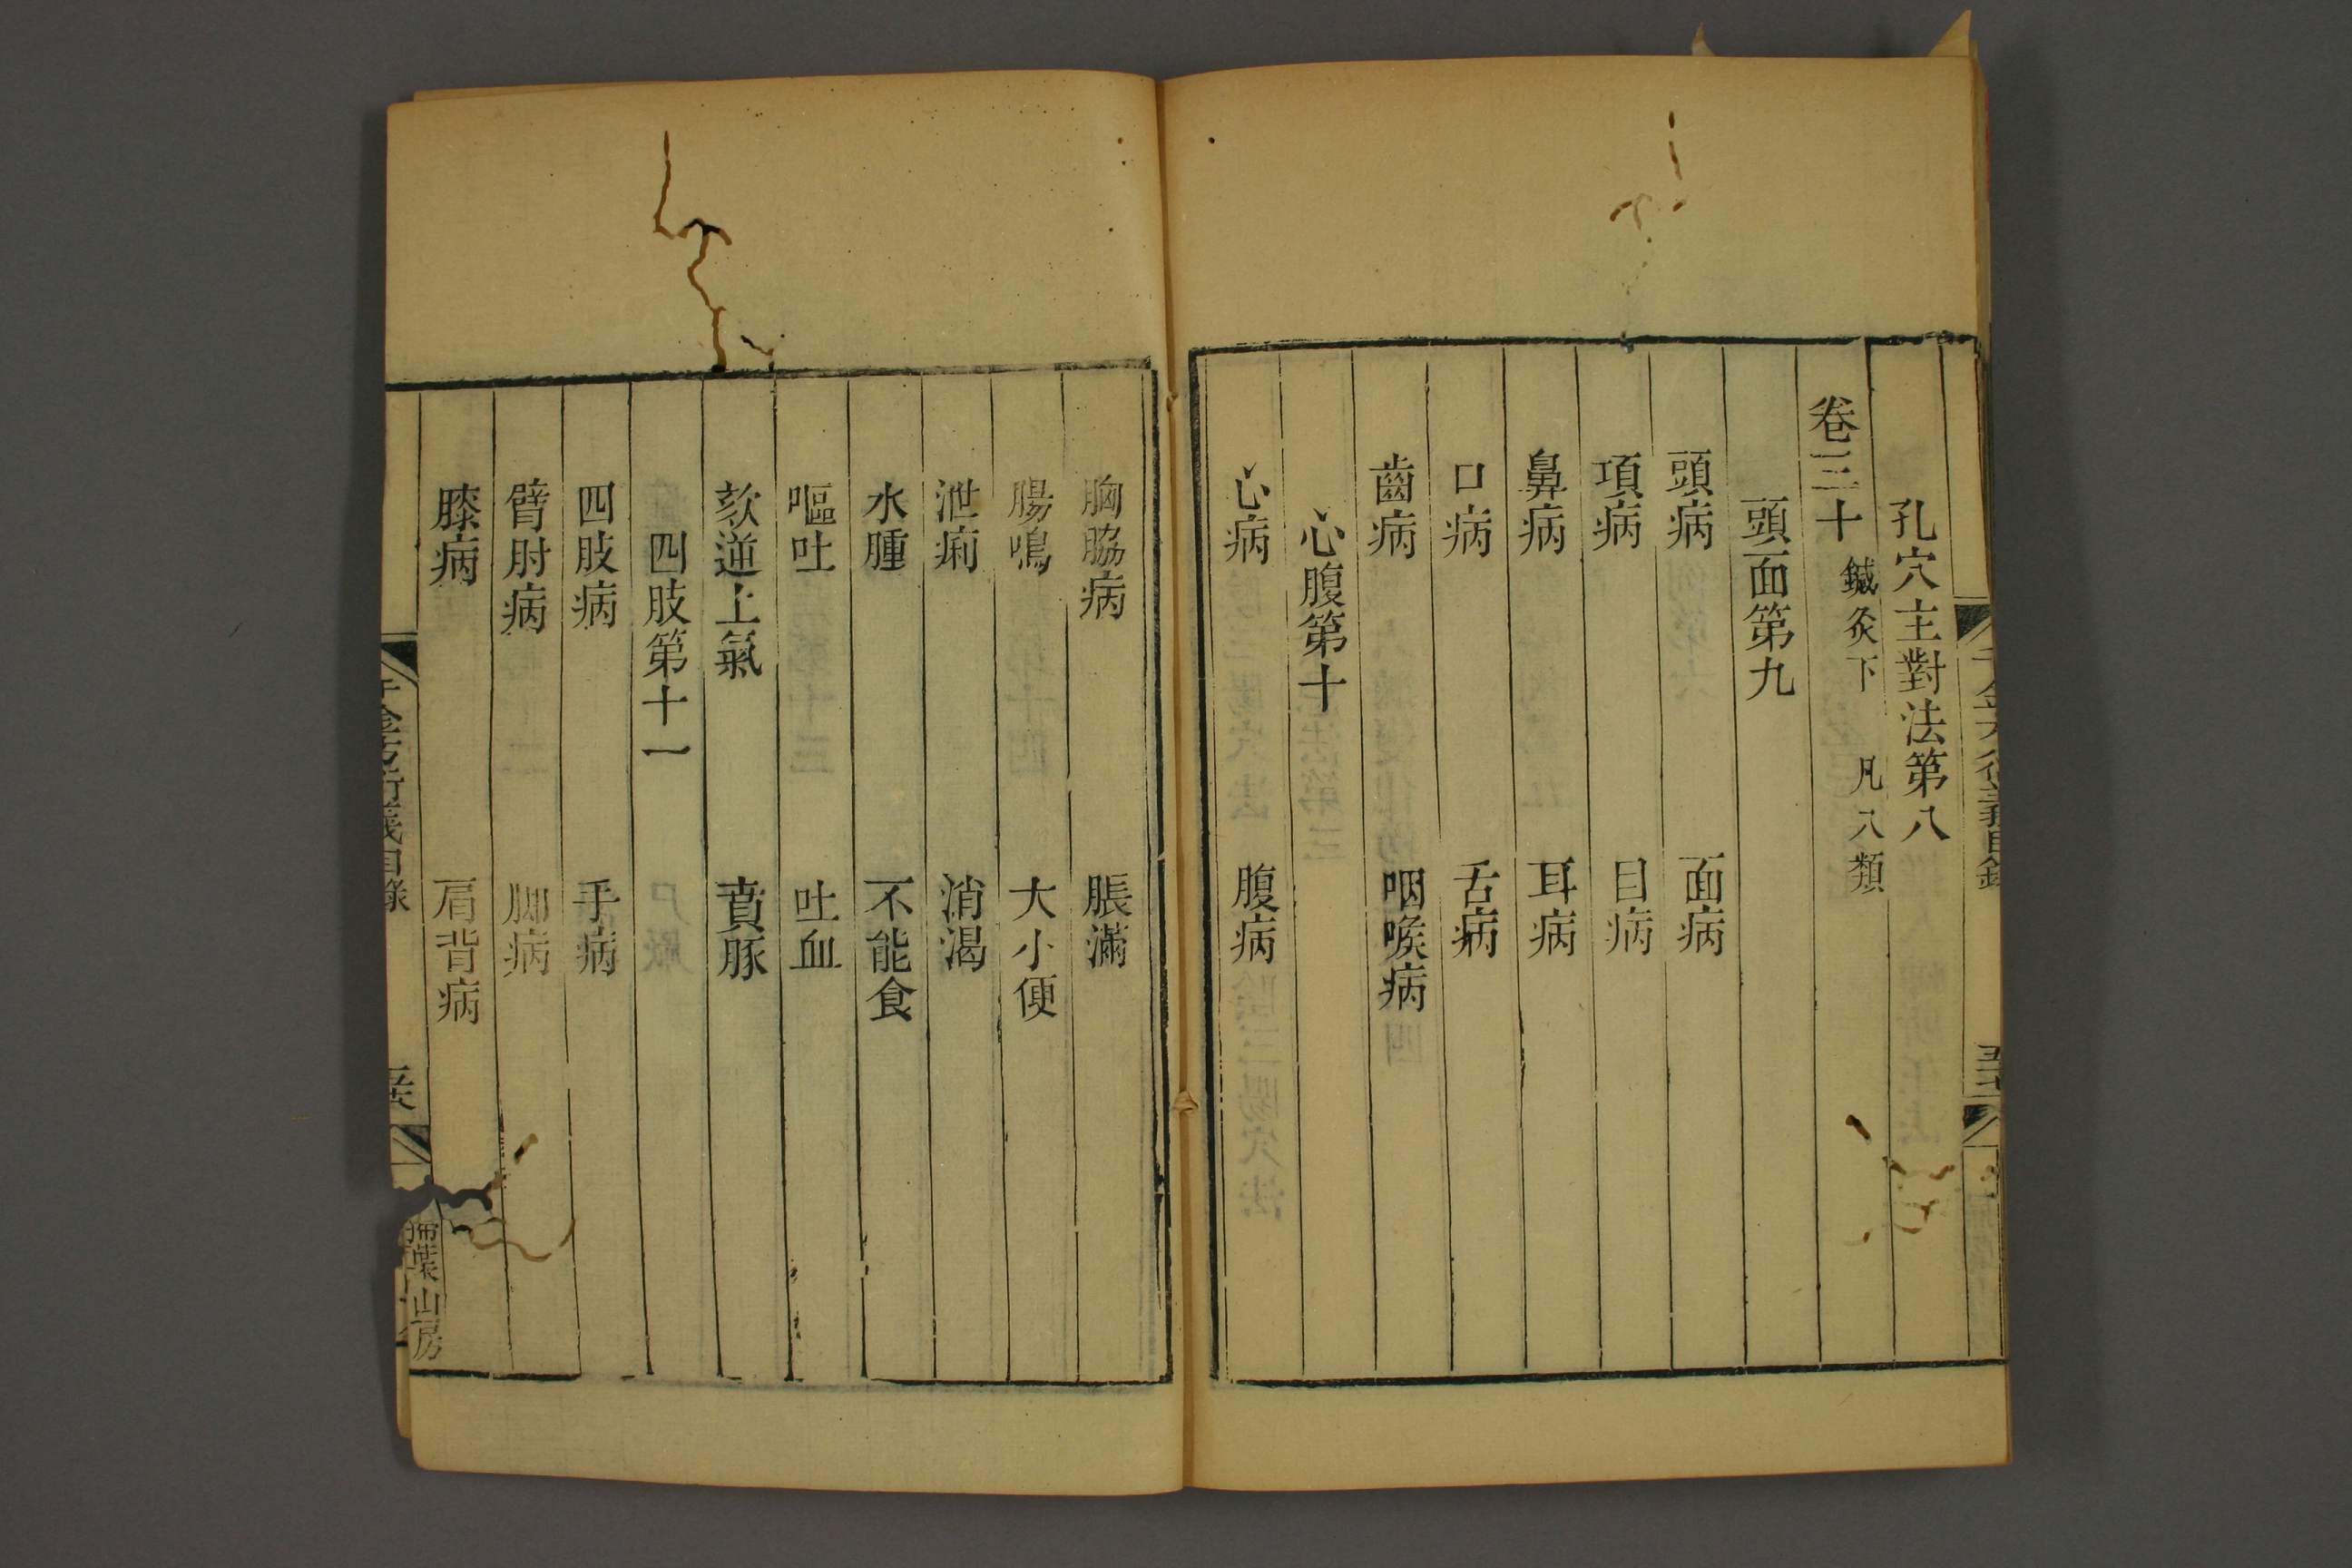 孔穴主對法第八
卷三十 鍼灸下 凡八類
頭面第九
頭病 面病
項病 目病
鼻病 耳病
口病 舌病
齒病 咽喉病
心腹第十
心病 腹病
胸脇病 脹滿
腸鳴 大小便
泄痢 消渴
水腫 不能食
嘔吐 吐血
欬逆上氣 賁豚
四肢第十一
四肢病 手病
臂肘病 腳病
膝病 肩背病
千金方衍義目錄
掃葉山房